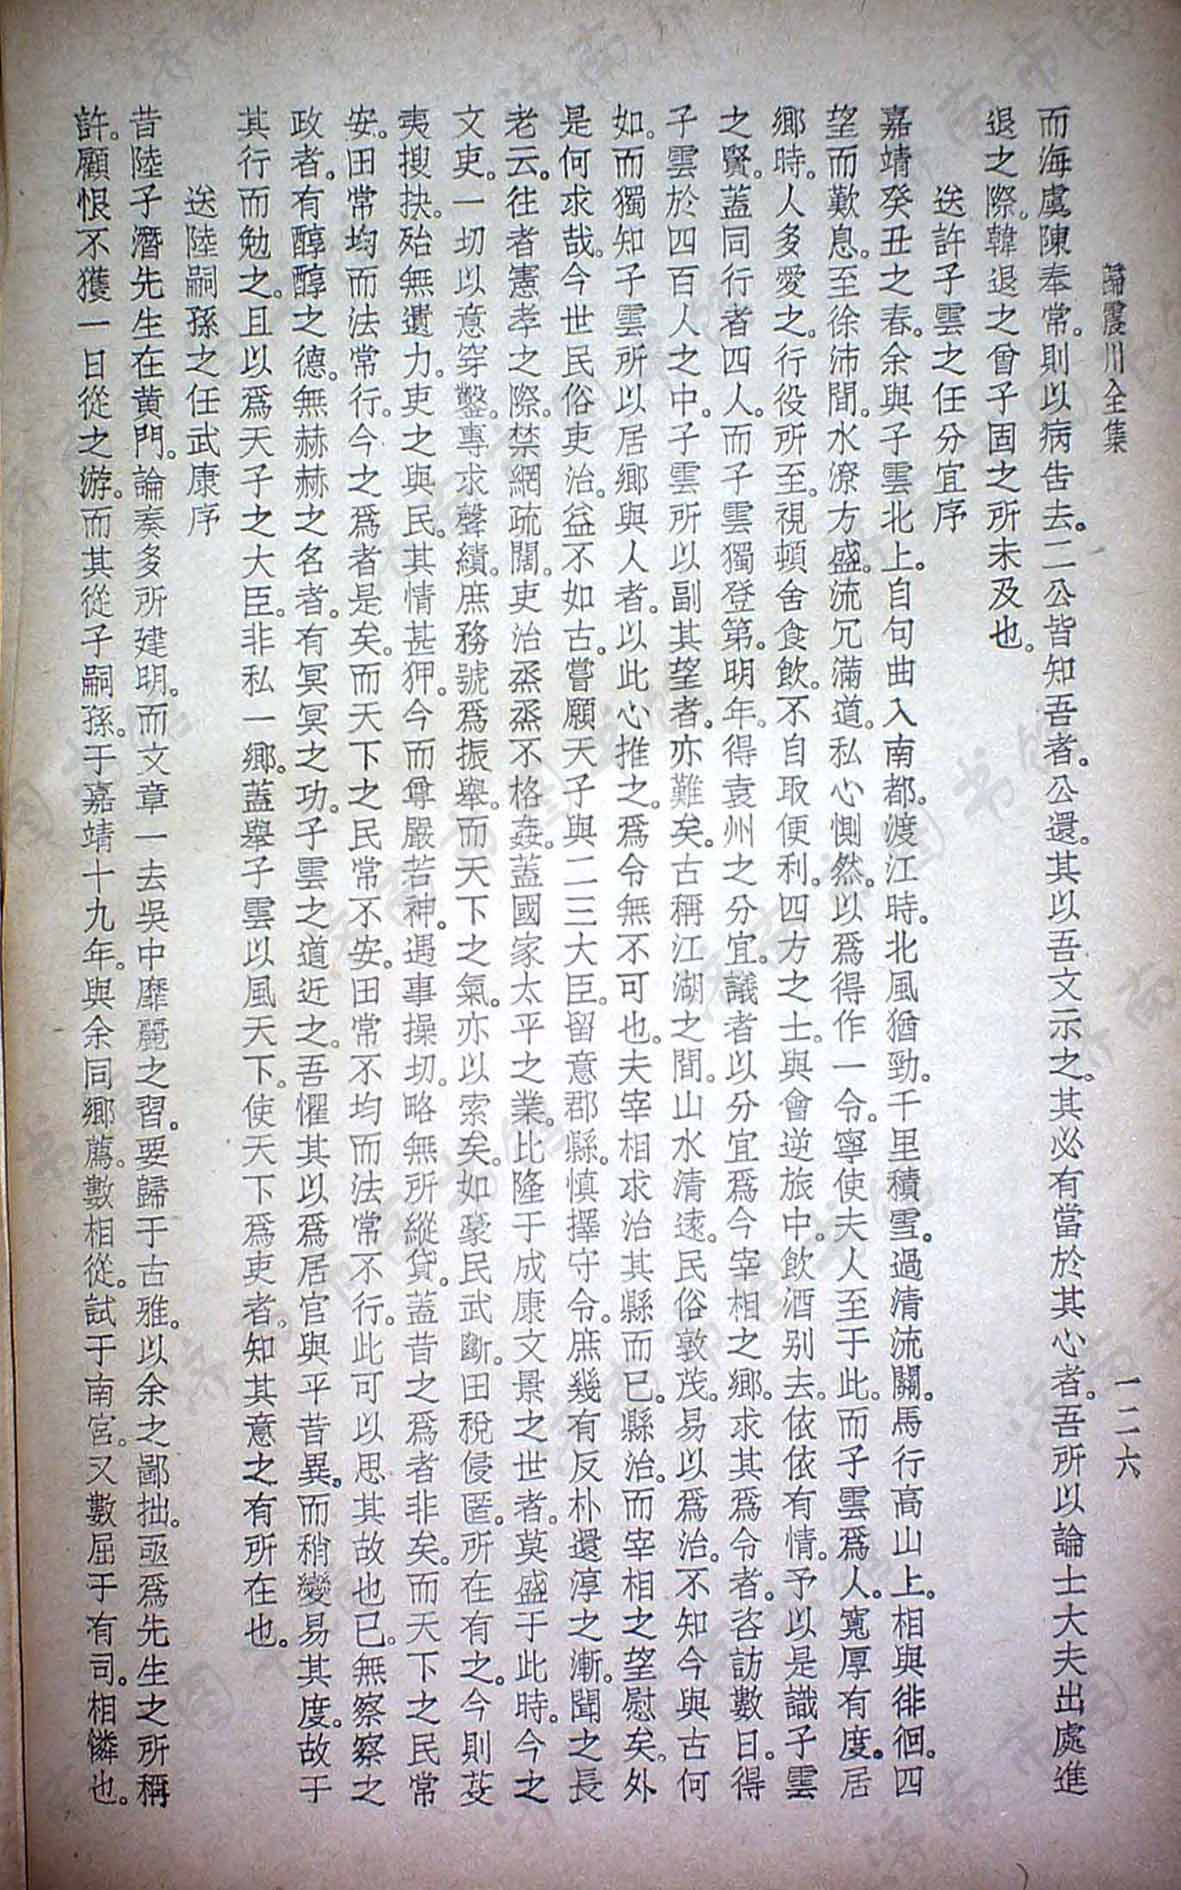 歸震川全集
一二六
而海虞陳奉常。則以病告去。二公皆知吾者。公還。其以吾文示之。其必有當於其心者。吾所以論士大夫出處進
退之際。韓退之曾子固之所未及也。
送許子雲之任分宜序
嘉靖癸丑之春。余與子雲北上。自句曲入南都。渡江時。北風猶勁。千里積雪。過清流關。馬行高山上。相與徘徊。四
望而歎息。至徐沛間。水潦方盛。流冗滿道。私心惻然。以爲得作一令。寧使夫人至于此。而子雲爲人。寬厚有度。居
鄉時。人多愛之。行役所至。視頓舍食飲。不自取便利。四方之士。與會逆旅中。飲酒別去。依依有情。予以是識子雲
之賢。蓋同行者四人。而子雲獨登第。明年。得袁州之分宜。議者以分宜爲今宰相之鄉。求其爲令者。咨訪數日。得
子雲於四百人之中。子雲所以副其望者。亦難矣。古稱江湖之間。山水清遠。民俗敦茂。易以爲治。不知今與古何
如。而獨知子雲所以居鄉與人者。以此心推之。爲令無不可也。夫宰相求治其縣而已。縣治。而宰相之望慰矣。外
是何求哉。今世民俗吏治。益不如古。嘗願天子與二三大臣。留意郡縣。慎擇守令。庶幾有反朴還淳之漸。聞之長
老云。往者憲孝之際。禁網疏闊。吏治烝烝不格姦。蓋國家太平之業。比隆于成康文景之世者。莫盛于此時。今之
文吏。一切以意穿鑿。專求聲績。庶務號爲振舉。而天下之氣。亦以索矣。如豪民武斷。田稅侵匿。所在有之。今則芟
夷搜抉。殆無遺力。吏之與民。其情甚狎。今而尊嚴若神。遇事操切。略無所縱貸。蓋昔之爲者非矣。而天下之民常
安。田常均而法常行。今之爲者是矣。而天下之民常不安。田常不均而法常不行。此可以思其故也已。無察察之
政者。有醇醇之德。無赫赫之名者。有冥冥之功。子雲之道近之。吾懼其以爲居官與平昔異。而稍變易其度。故于
其行而勉之。且以爲天子之大臣。非私一鄉。蓋舉子雲以風天下。使天下爲吏者。知其意之有所在也。
送陸嗣孫之任武康序
昔陸子潛先生在黄門。論奏多所建明。而文章一去吳中靡麗之習。要歸于古雅。以余之鄙拙。亟爲先生之所稱
許。顧恨不獲一日從之游。而其從子嗣孫。于嘉靖十九年。與余同鄉薦。數相從。試于南宮。又數屈于有司。相憐也。